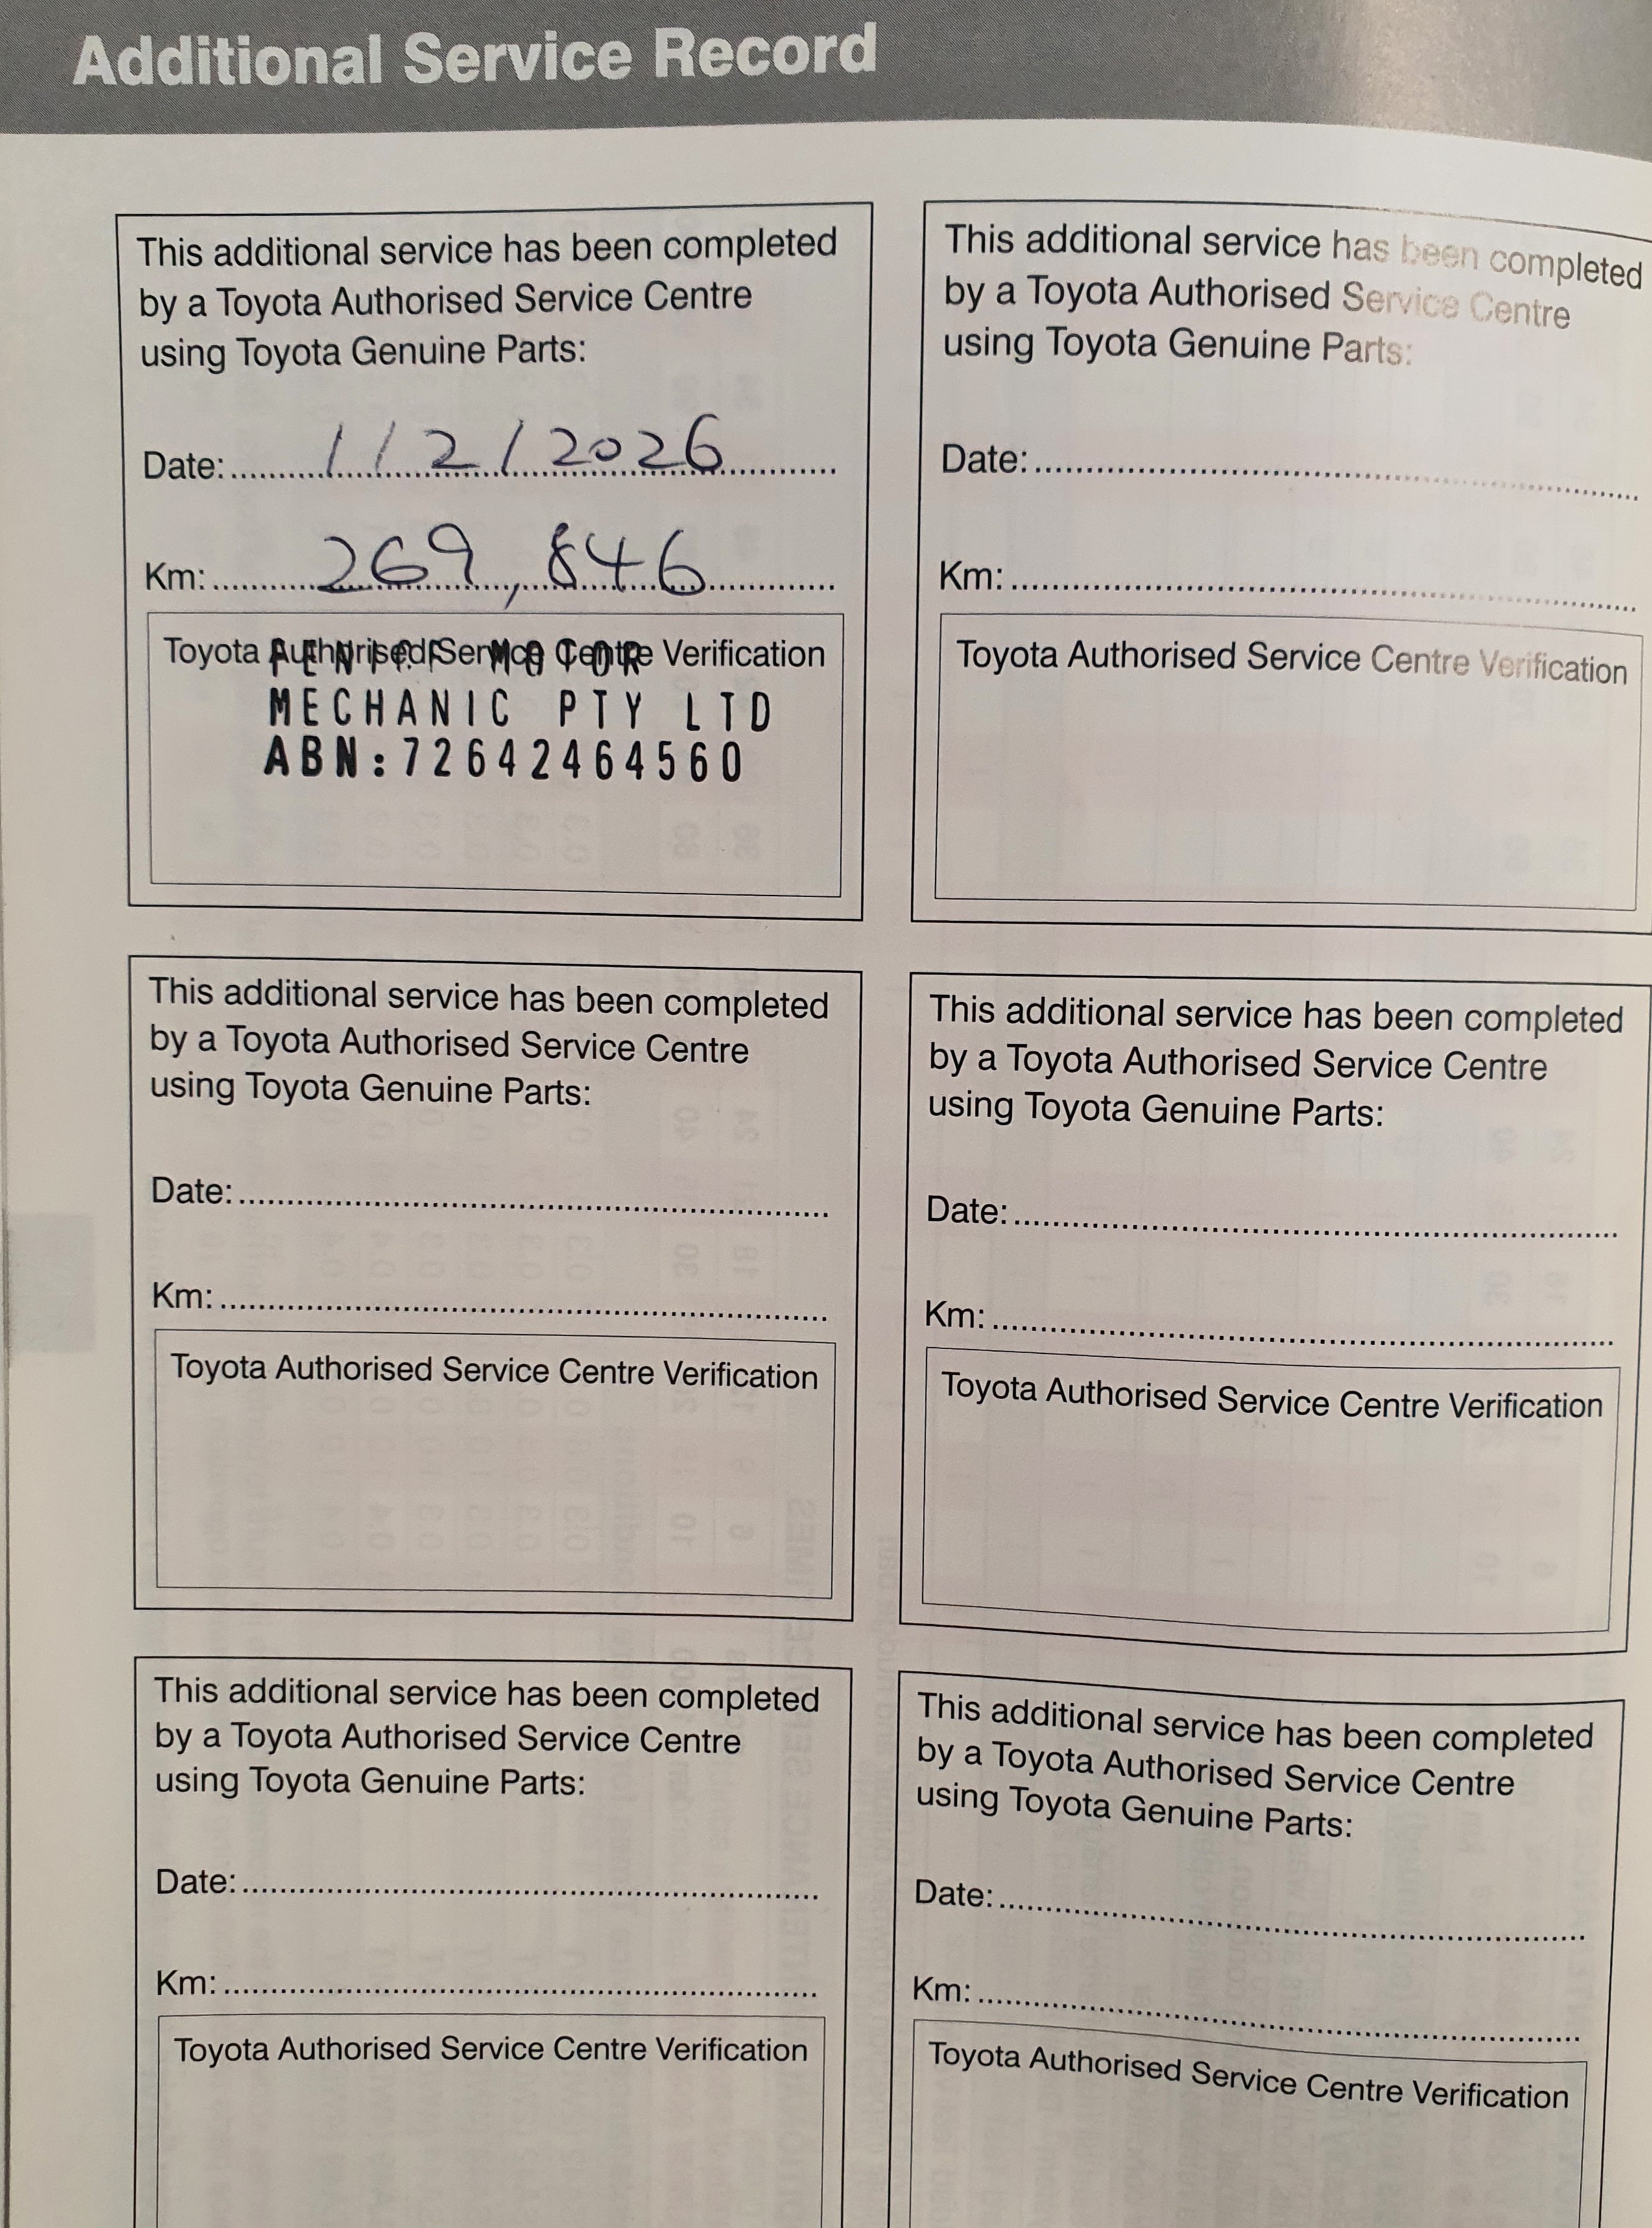 Additional Service Record
This additional service has been completed
by a Toyota Authorised Service Centre
using Toyota Genuine Parts:
Date: 1/2/2026
Km: 269,846
Toyota Authorised Service Centre Verification
MOTOR
MECHANIC PTY LTD
ABN:72642464560
This additional service has been completed
by a Toyota Authorised Service Centre
using Toyota Genuine Parts:
Date:
Km:
Toyota Authorised Service Centre Verification
This additional service has been completed
by a Toyota Authorised Service Centre
using Toyota Genuine Parts:
Date:
Km:
Toyota Authorised Service Centre Verification
This additional service has been completed
by a Toyota Authorised Service Centre
using Toyota Genuine Parts:
Date:
Km:
Toyota Authorised Service Centre Verification
This additional service has been completed
by a Toyota Authorised Service Centre
using Toyota Genuine Parts:
Date:
Km:
Toyota Authorised Service Centre Verification
This additional service has been completed
by a Toyota Authorised Service Centre
using Toyota Genuine Parts:
Date:
Km:
Toyota Authorised Service Centre Verification